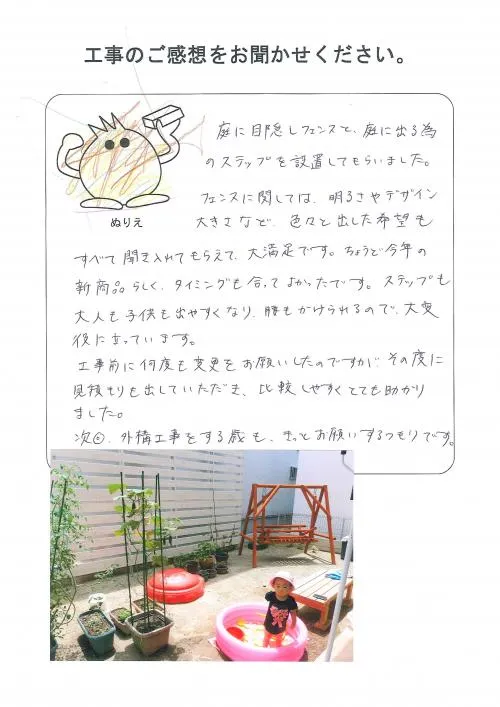 工事のご感想をお聞かせください。
ぬりえ
庭に目隠しフェンスと、庭に出る為
のステップを設置してもらいました。
フェンスに関しては、明るさやデザイン
大きさなど、色々と出した希望も
すべて聞き入れてもらえて、大満足です。ちょうど今年の
新商品らしく、タイミングも合ってよかったです。ステップも
大人も子供も出やすくなり、腰もかけられるので、大変
役に立っています。
工事前に何度も変更をお願いしたのですが、その度に
見積もりを出していただき、比較しやすくとても助かり
ました。
次回、外構工事をする歳も、きっとお願いするつもりです。